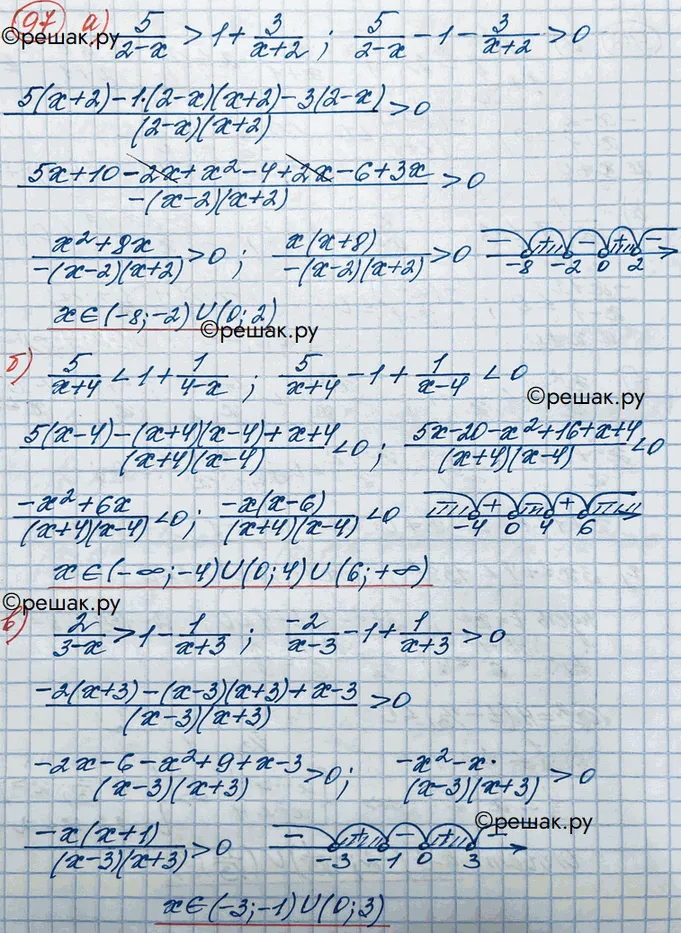 97 а) 5/(2-x) > 1 + 3/(x+2) ; 5/(2-x) - 1 - 3/(x+2) > 0
©решак.ру
©решак.ру
(5(x+2) - 1·(2-x)(x+2) - 3(2-x))/((2-x)(x+2)) > 0
(5x + 10 - 2x + x² - 4 + 2x - 6 + 3x)/(-(x-2)(x+2)) > 0
(x² + 8x)/(-(x-2)(x+2)) > 0 ; (x(x+8))/(-(x-2)(x+2)) > 0 - + - + -
-8 -2 0 2
x ∈ (-8; -2) ∪ (0; 2)
©решак.ру
б) 5/(x+4) < 1 + 1/(4-x) ; 5/(x+4) - 1 + 1/(x-4) < 0
©решак.ру
(5(x-4) - (x+4)(x-4) + x+4)/((x+4)(x-4)) < 0 ; (5x - 20 - x² + 16 + x + 4)/((x+4)(x-4)) < 0
(-x² + 6x)/((x+4)(x-4)) < 0 ; (-x(x-6))/((x+4)(x-4)) < 0 + +
-4 0 4 6
x ∈ (-∞; -4) ∪ (0; 4) ∪ (6; +∞)
©решак.ру
в) 2/(3-x) > 1 - 1/(x+3) ; -2/(x-3) - 1 + 1/(x+3) > 0
(-2(x+3) - (x-3)(x+3) + x-3)/((x-3)(x+3)) > 0
(-2x - 6 - x² + 9 + x - 3)/((x-3)(x+3)) > 0 ; (-x² - x)/((x-3)(x+3)) > 0
©решак.ру
(-x(x+1))/((x-3)(x+3)) > 0 - + - + -
-3 -1 0 3
x ∈ (-3; -1) ∪ (0; 3)